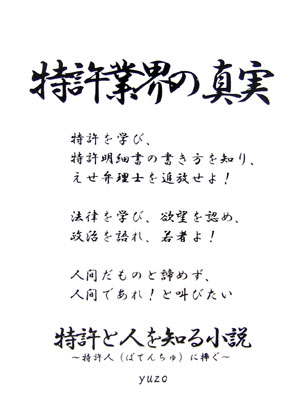 特許業界の真実
特許を学び、
特許明細書の書き方を知り、
えせ弁理士を追放せよ！
法律を学び、欲望を認め、
政治を語れ、若者よ！
人間だものと諦めず、
人間であれ！と叫びたい
特許と人を知る小説
～特許人（ぱてんちゅ）に捧ぐ～
yuzo